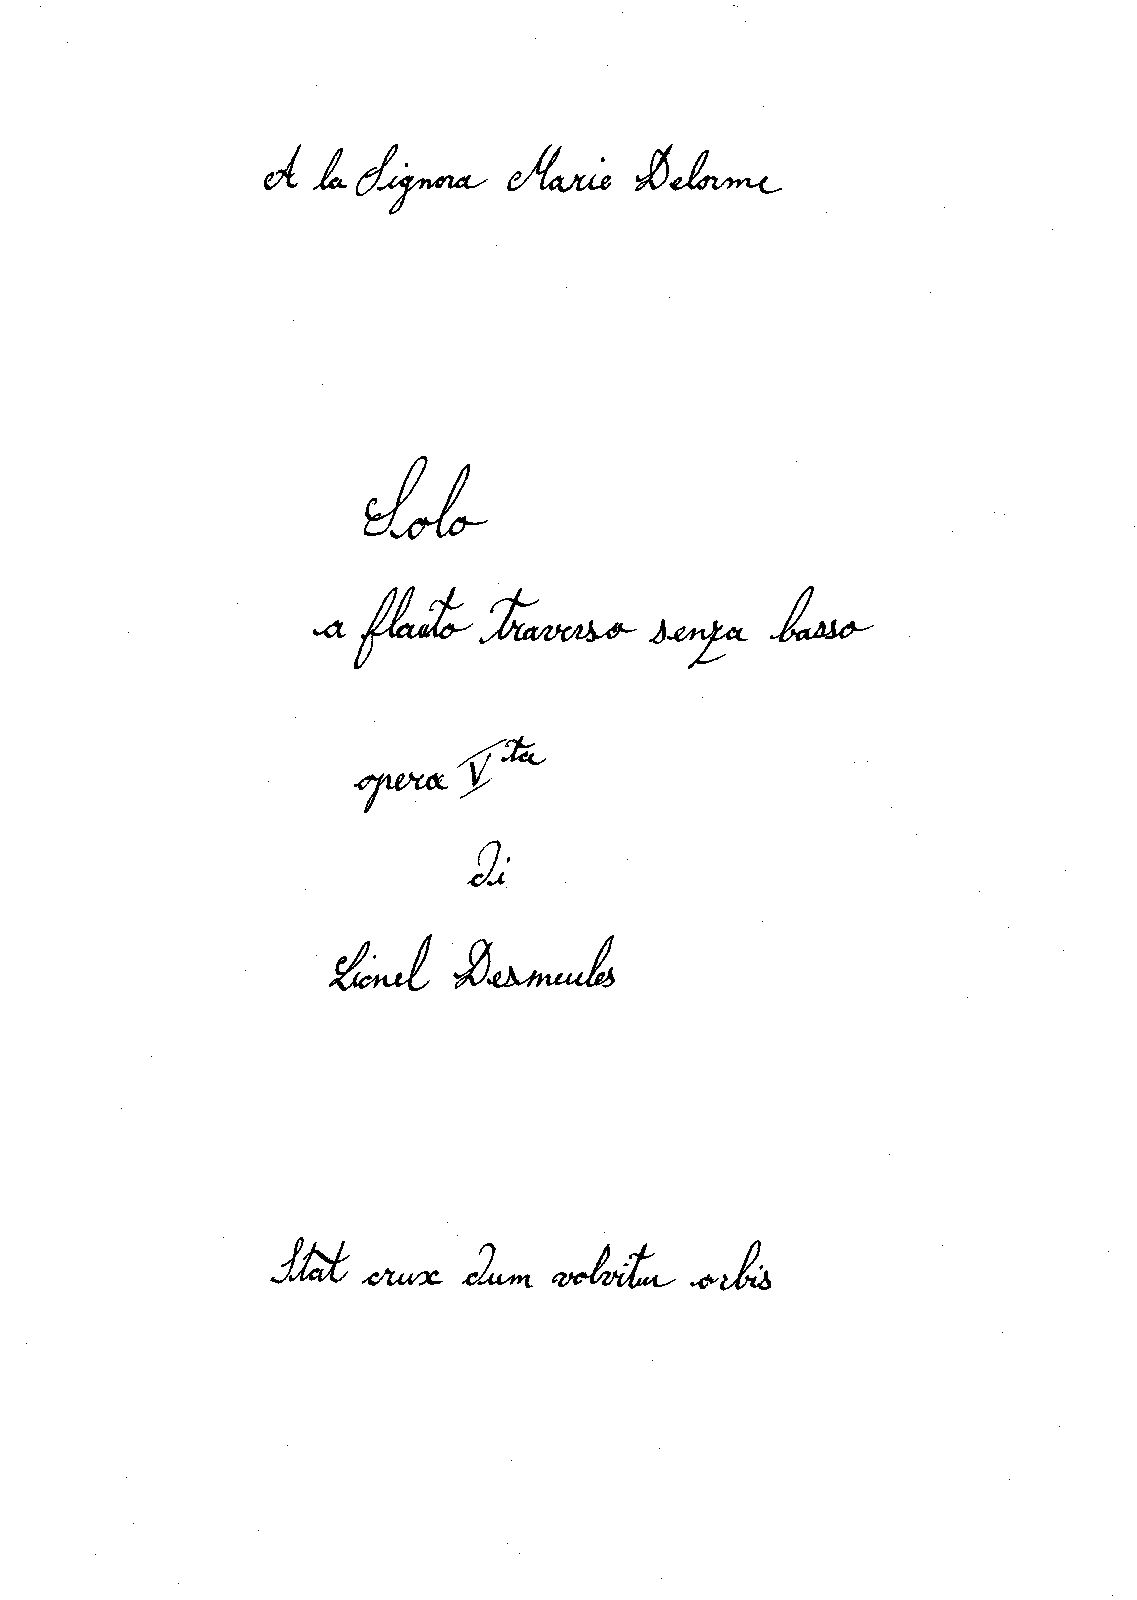 A la Signora Marie Delorme
Solo
a flauto traverso senza basso
opera V ta
di
Lionel Desmeules
Stat crux dum volvitur orbis